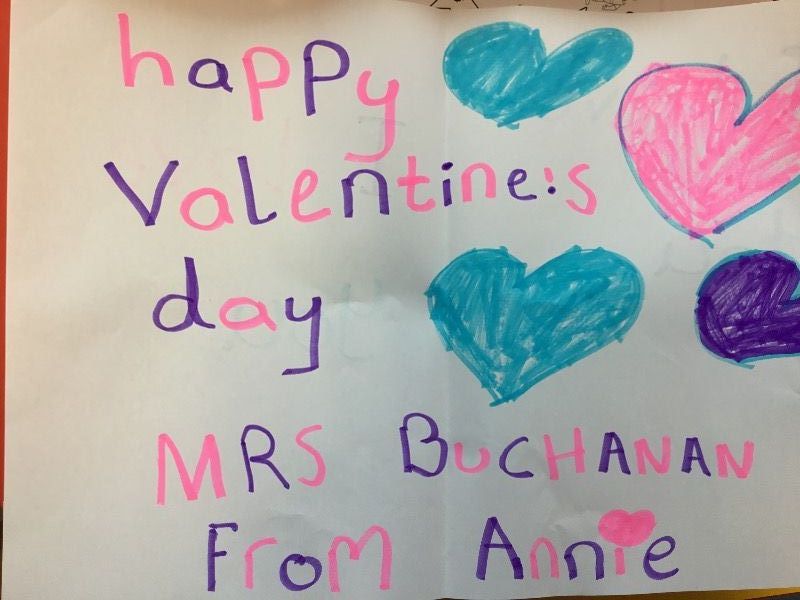 happy
Valentine:s
day
MRS BUCHANAN
From Annie